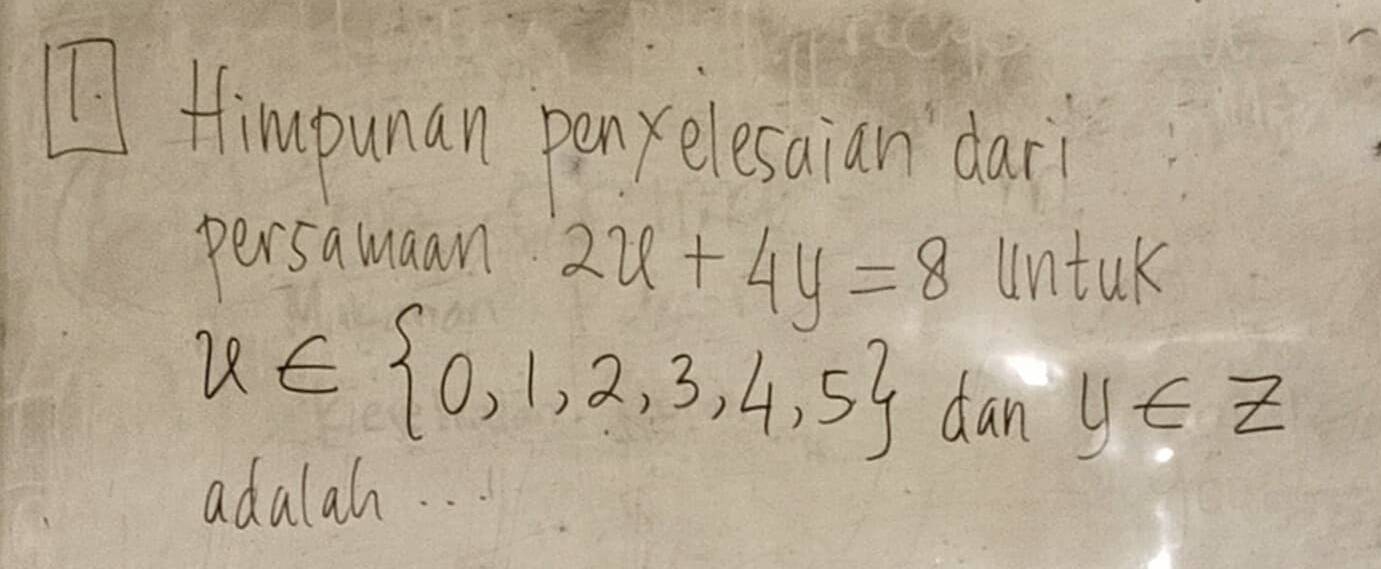 1. Himpunan penyelesaian dari
persamaan 2x + 4y = 8 untuk
x ∈ {0, 1, 2, 3, 4, 5} dan y ∈ Z
adalah ...